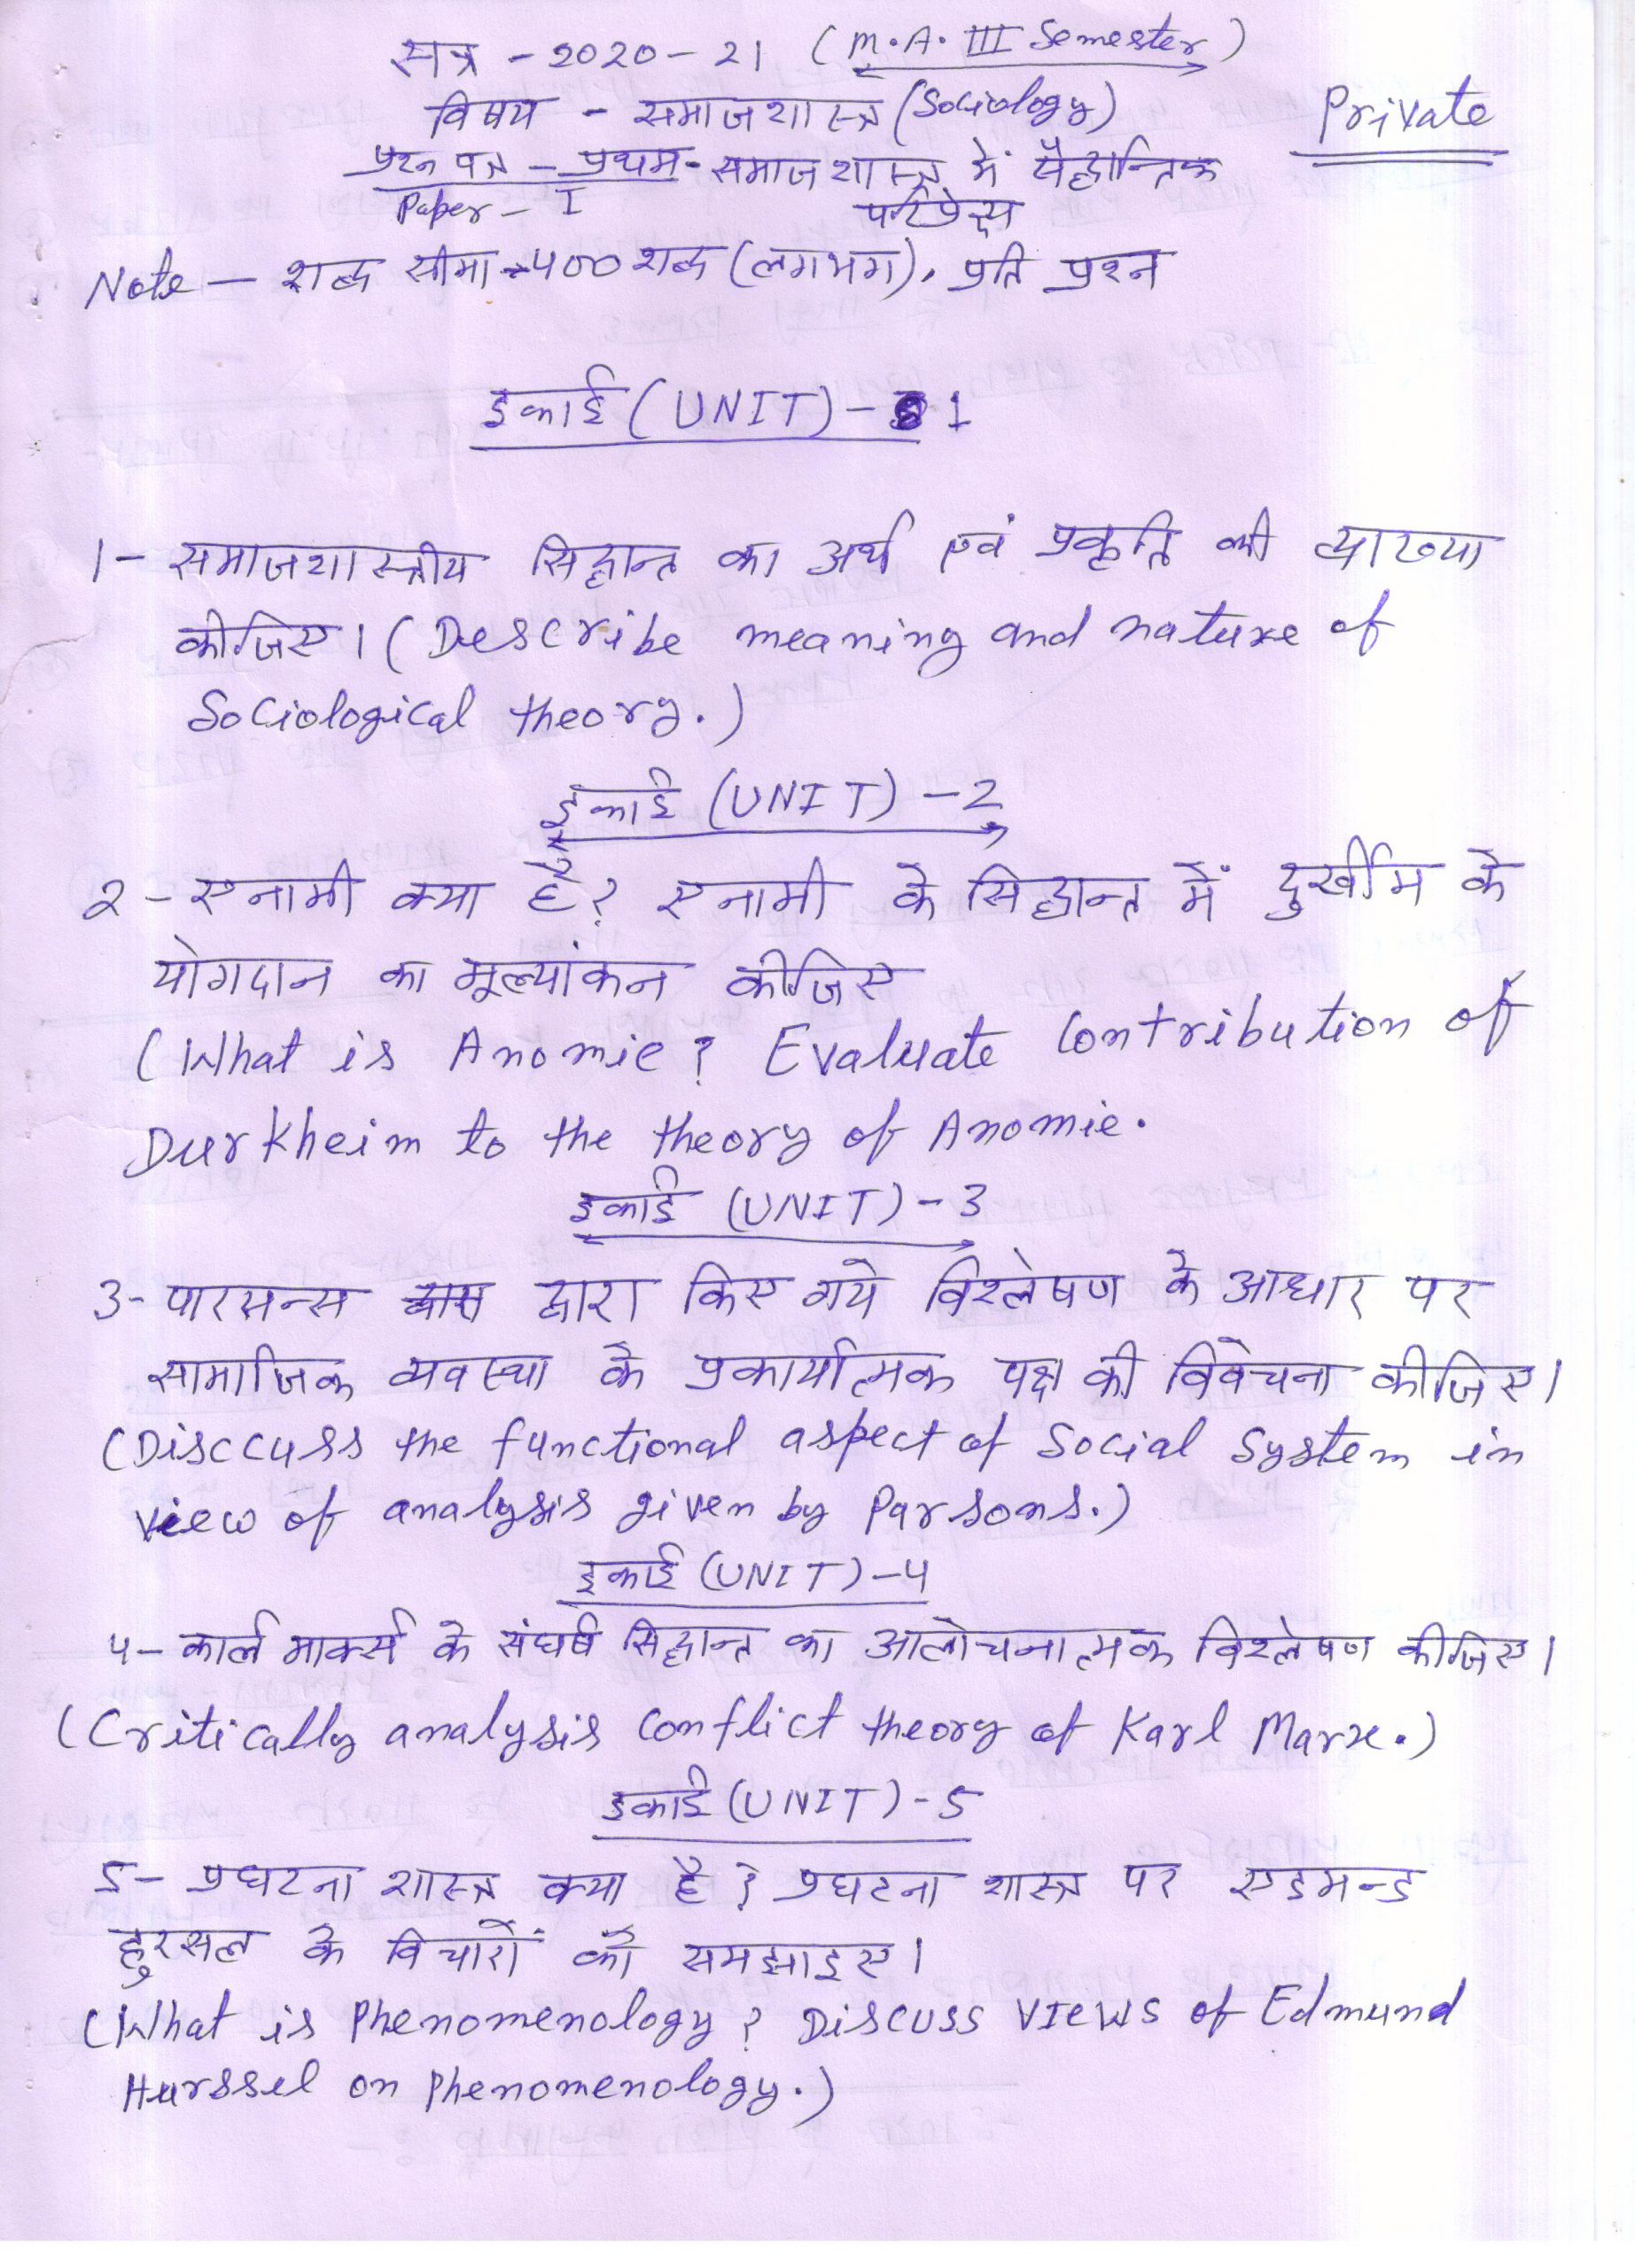 सत्र - 2020-21 (M.A. III Semester)
विषय - समाजशास्त्र (Sociology)
Private
प्रश्न पत्र - प्रथम - समाजशास्त्र में सैद्धान्तिक
Paper - I परिप्रेक्ष्य
Note - शब्द सीमा - 400 शब्द (लगभग), प्रति प्रश्न
इकाई (UNIT) - 1
1- समाजशास्त्रीय सिद्धान्त का अर्थ एवं प्रकृति की व्याख्या
कीजिए। (Describe meaning and nature of
Sociological theory.)
इकाई (UNIT) - 2
2 - एनामी क्या है? एनामी के सिद्धान्त में दुर्खीम के
योगदान का मूल्यांकन कीजिए
(What is Anomie? Evaluate Contribution of
Durkheim to the theory of Anomie.
इकाई (UNIT) - 3
3- पारसन्स द्वारा किए गये विश्लेषण के आधार पर
सामाजिक व्यवस्था के प्रकार्यात्मक पक्ष की विवेचना कीजिए।
(Disccuss the functional aspect of Social System in
view of analysis given by Parsons.)
इकाई (UNIT) - 4
4- कार्ल मार्क्स के संघर्ष सिद्धान्त का आलोचनात्मक विश्लेषण कीजिए।
(Critically analysis Conflict theory of Karl Marx.)
इकाई (UNIT) - 5
5- प्रघटना शास्त्र क्या है? प्रघटना शास्त्र पर एडमन्ड
हुरसल के विचारों को समझाइए।
(What is Phenomenology? Discuss views of Edmund
Hurssel on Phenomenology.)